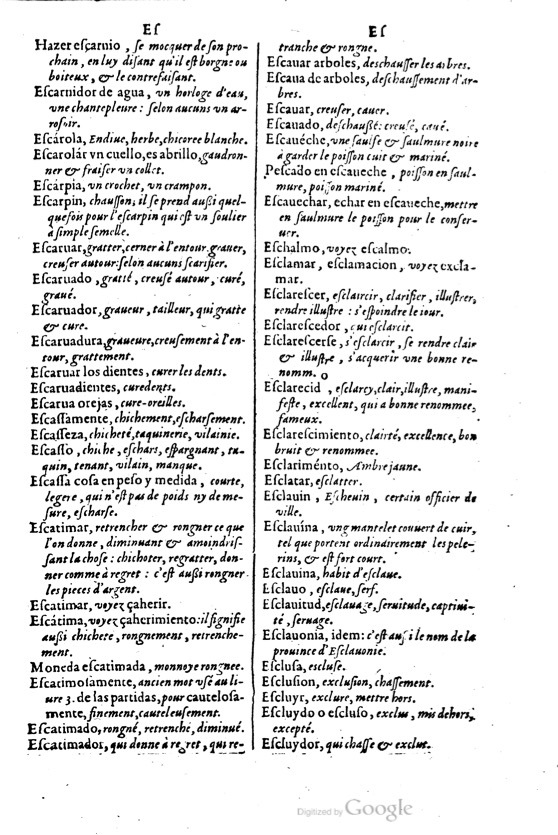 Eſ
Hazer eſcarnio, ſe mocquer de ſon pro-
chain, en luy diſant qu'il eſt borgne ou
boiteux, & le contrefaiſant.
Eſcarnidor de agua, vn horloge d'eau,
vne chantepleure : ſelon aucuns vn ar-
roſoir.
Eſcárola, Endiue, herbe, chicoree blanche.
Eſcarolár vn cuello, es abrillo, gaudron-
ner & fraiſer vn collet.
Eſcárpia, vn crochet, vn crampon.
Eſcarpin, chauſſon; il ſe prend auſſi quel-
quefois pour l'eſcarpin qui eſt vn ſoulier
à ſimple ſemelle.
Eſcaruar, gratter, cerner à l'entour, grauer,
creuſer autour: ſelon aucuns ſcarifier.
Eſcaruado, gratté, creuſé autour, curé,
graué.
Eſcaruador, graueur, tailleur, qui gratte
& cure.
Eſcaruadura, graueure, creuſement à l'en-
tour, grattement.
Eſcaruar los dientes, curer les dents.
Eſcaruadientes, curedents.
Eſcarua orejas, cure-oreilles.
Eſcaſſamente, chichement, eſcharſement.
Eſcaſſeza, chicheté, taquinerie, vilainie.
Eſcaſſo, chiche, eſchars, eſpargnant, ta-
quin, tenant, vilain, manque.
Eſcaſſa coſa en peſo y medida, courte,
legere, qui n'eſt pas de poids ny de me-
ſure, eſcharſe.
Eſcatimar, retrencher & rongner ce que
l'on donne, diminuant & amoindriſ-
ſant la choſe : chichoter, regratter, don-
ner comme à regret : c'eſt auſſi rongner
les pieces d'argent.
Eſcatimar, voyez çaherir.
Eſcátima, voyez çaherimiento: il ſignifie
auſſi chicheté, rongnement, retrenche-
ment.
Moneda eſcatimada, monnoye rongnee.
Eſcatimoſamente, ancien mot vſé au li-
ure 3. de las partidas, pour cauteloſa-
mente, finement, cauteleuſement.
Eſcatimado, rongné, retrenché, diminué.
Eſcatimador, qui donne à regret, qui re-
Eſ
tranche & rongne.
Eſcauar arboles, deschauſſer les arbres.
Eſcaua de arboles, deſchauſſement d'ar-
bres.
Eſcauar, creuſer, cauer.
Eſcauado, deſchauſſé: creuſé, caué.
Eſcauéche, vne ſaulſe & ſaulmure noire
à garder le poiſſon cuit & mariné.
Peſcado en eſcaueche, poiſſon en ſaul-
mure, poiſſon mariné.
Eſcauechar, echar en eſcaueche, mettre
en ſaulmure le poiſſon pour le conſer-
uer.
Eſchalmo, voyez eſcalmo.
Eſclamar, eſclamacion, voyez excla-
mar.
Eſclareſcer, eſclaircir, clarifier, illuſtrer,
rendre illuſtre : s'eſpoindre le iour.
Eſclareſcedor, qui eſclarcit.
Eſclareſcerſe, s'eſclarcir, ſe rendre clair
& illuſtre, s'acquerir vne bonne re-
nomm.
Eſclarecid, eſclarcy, clair, illuſtre, mani-
feſte, excellent, qui a bonne renommee,
fameux.
Eſclareſcimiento, clairté, excellence, bon
bruit & renommee.
Eſclariménto, Ambre jaune.
Eſclatar, eſclatter.
Eſclauin, Eſcheuin, certain officier de
ville.
Eſclauína, vng mantelet couuert de cuir,
tel que portent ordinairement les pele-
rins, & eſt fort court.
Eſclauina, habit d'eſclaue.
Eſclauo, eſclaue, ſerf.
Eſclauitud, eſclauage, ſeruitude, captiui-
té, ſeruage.
Eſclauonia, idem: c'eſt auſſi le nom de la
prouince d'Eſclauonie.
Eſcluſa, escluſe.
Eſcluſion, excluſion, chaſſement.
Eſcluyr, exclure, mettre hors.
Eſcluydo o eſcluſo, exclus, mis dehors,
excepté.
Eſcluydor, qui chaſſe & exclut.
Digitized by Google